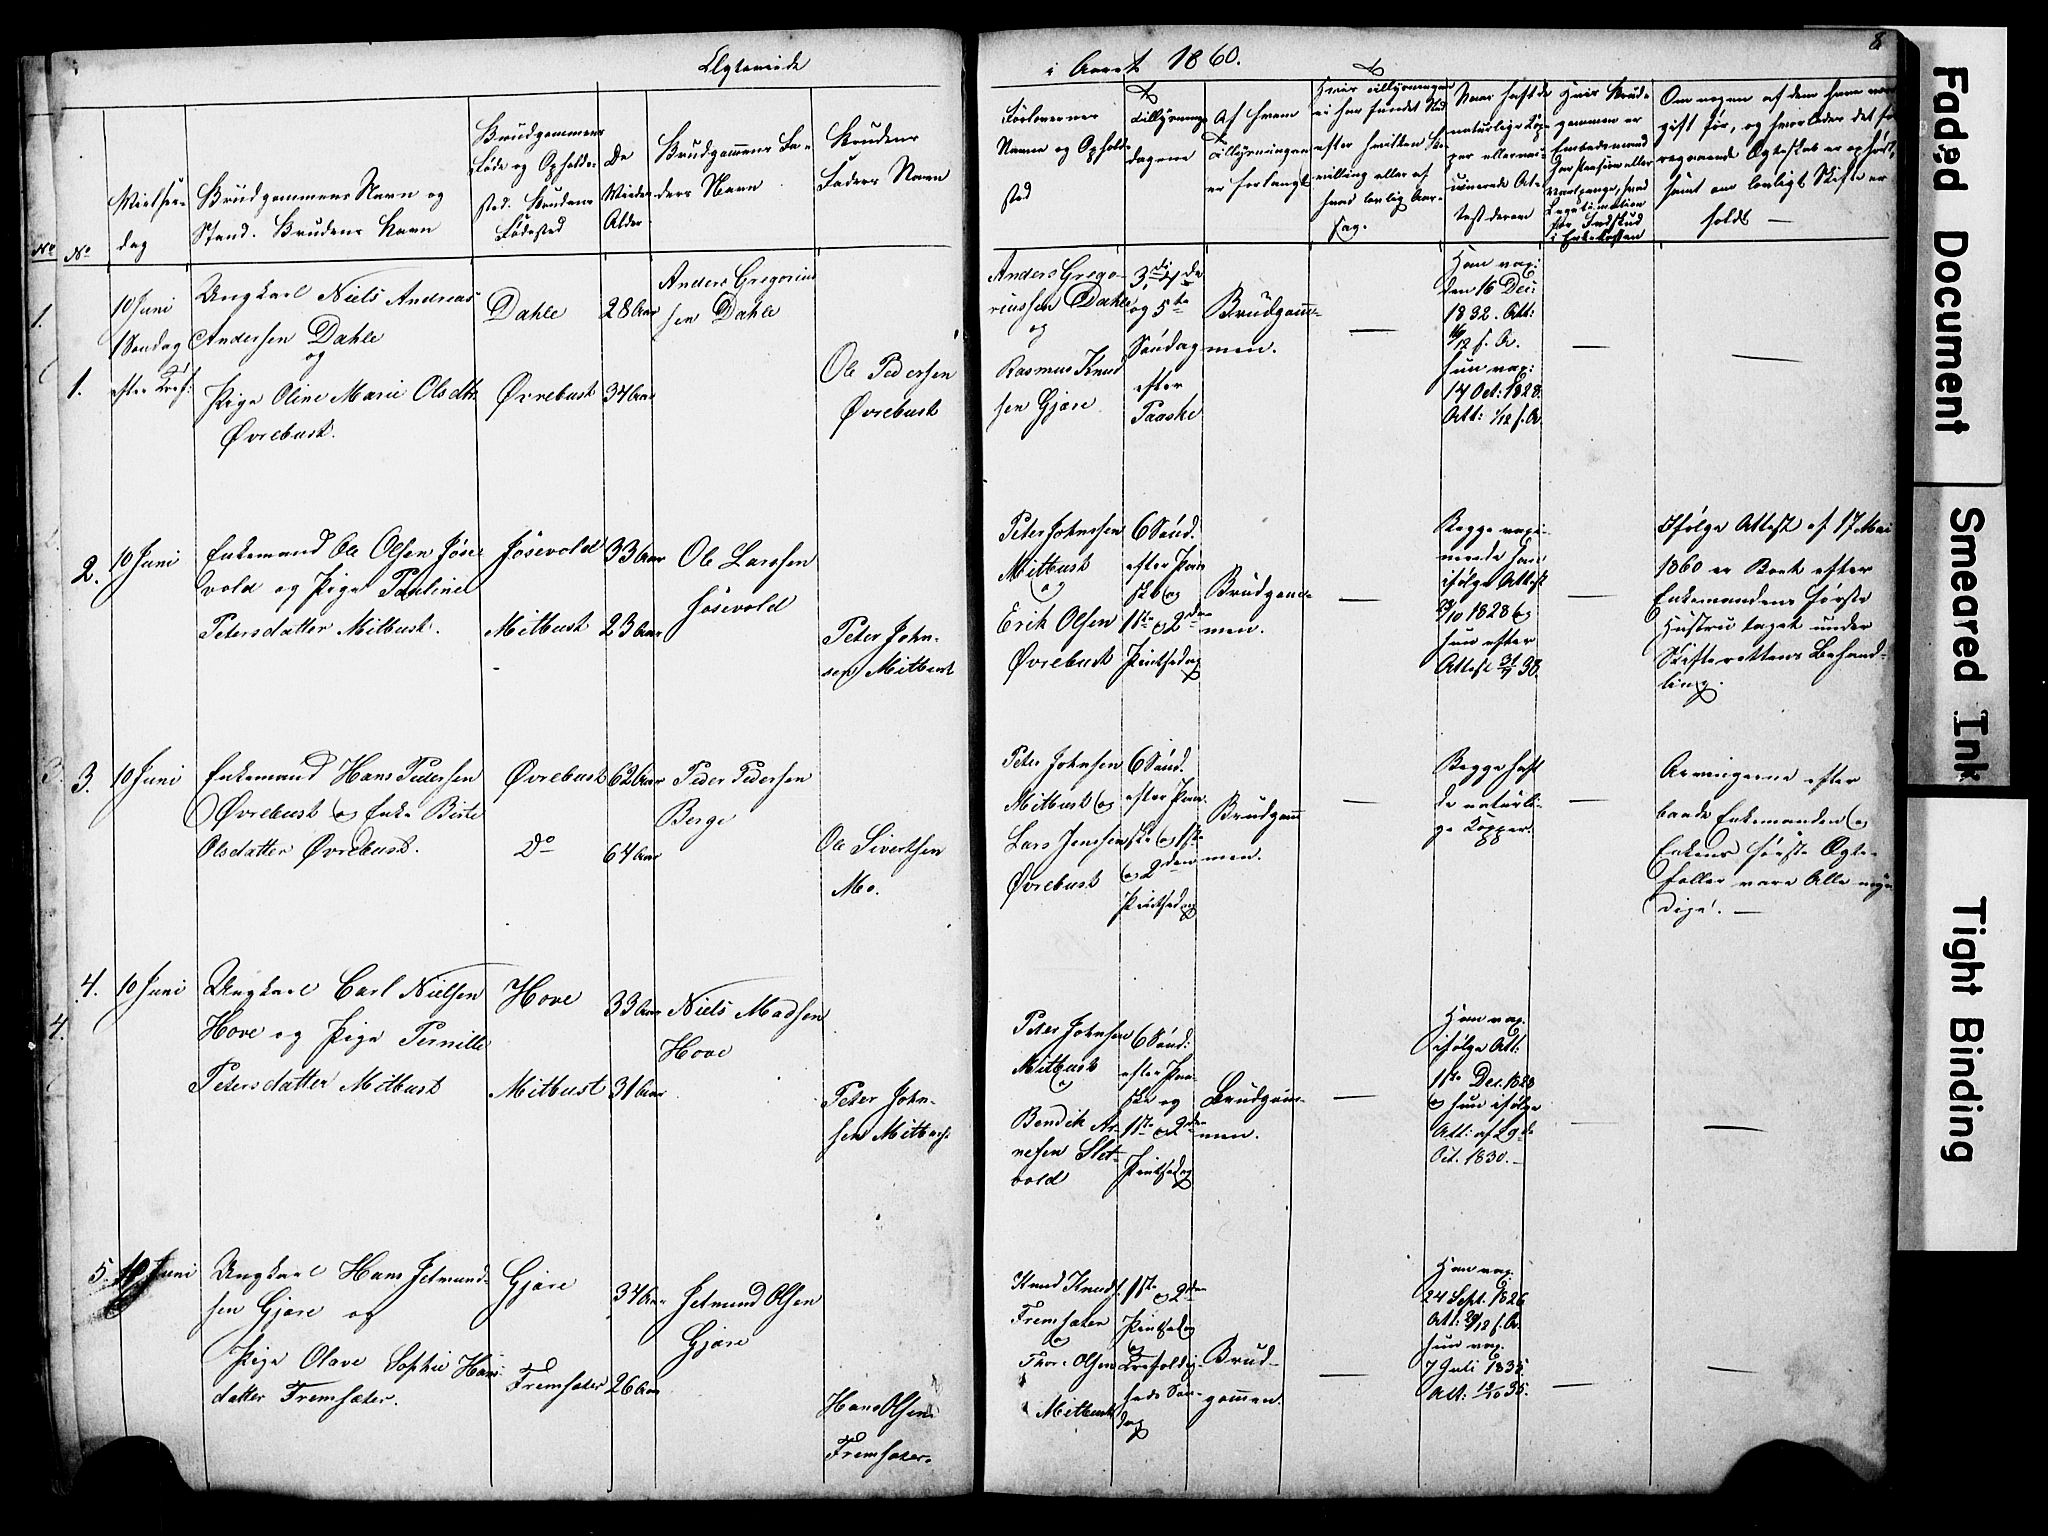 Ægteviede
i Aaret 1860.
8
No
No
Vielses-
dag
Brudgommens Navn og
Stand. Brudens Navn
Brudgommens
Føde og Opholds-
sted. Brudens
Fødested
De
Viedes
Alder
Brudgommens Fa-
ders Navn
Brudens
Faders Navn
Forlovernes
Navne og Opholds
sted
Tillysnings-
dagene
Af hvem
Tillysningen
er forlangt
Hvis Tillysningen
ei har fundet Sted
efter hvilken Be-
villing eller af
hvad lovlig Aar-
sag.
Naar havt de
naturlige Kop-
per eller vac-
cinerede At-
test derom
Hvis Brud-
gommen er
Embedsmand
har Pension eller
Vartpenge, hans
Legitimation
for Indskud
i Enkekassen
Om nogen af dem have været
gift før, og hvorledes det fo-
regaaende Ægteskab er ophørt,
samt om lovligt Skifte er
holdt —
1.
1.
10 Juni
1 Søndag
efter Tref:
Ungkarl Niels Andreas
Andersen Dahle
og
Pige Oline Marie Olsdtr
Øvrebust.
Dahle
Øvrebust
28 Aar
34 Aar
Anders Gregorius
sen Dahle
Ole Pedersen
Øvrebust
Anders Grego-
riussen Dahle
og
Rasmus Knud
sen Gjære
3die, 4de
og 5te
Søndag
efter
Paaske
Brudgom-
men.
—
Han vax:
den 16 Dec:
1832. Att:
16/12 s. A.
hun vax:
14 Oct: 1828.
Att: 1/12 s. A.
—
—
2.
10 Juni
Enkemand Ole Olsen Jøse-
vold og Pige Pauline
Petersdatter Mitbust.
Jøsevold
Mitbust
33 Aar
23 Aar
Ole Larssen
Jøsevold
Peter John-
sen Mitbust
Peter Johnssen
Mitbust
og
Erik Olsen
Øvrebust
6 Sønd.
efter Paa
ske og
1ste og 2den
Pintsedag
Brudgom-
men.
—
Begge vaxi-
nerede han
ifølge Attest
/10 1828 og
hun efter
Attest 38.
—
Ifølge Attest af 17 Mai
1860 er Boet efter
Enkemandens første
Hustru taget under
Skifterettens Behand-
ling.
3.
3.
10 Juni
Enkemand Hans Pedersen
Øvrebust og Enke Birte
Olsdatter Øvrebust.
Øvrebust
Do
62 Aar
64 Aar
Peder Pedersen
Berge
Ole Sivertsen
Mo.
Peter Johnsen
Mitbust og
Lars Jenssen
Øvrebust
6 Sønd.
efter Paa-
ske og 1ste
og 2den
Pintsedag
Brudgom
men.
—
Begge havt
de naturli-
ge Kopper.
—
Arvingerne efter
baade Enkemanden og
Enkens første Ægte-
fæller vare Alle myn-
dige. —
4.
4.
10 Juni
Ungkarl Carl Nielsen
Hove og Pige Pernille
Petersdatter Mitbust
Hove
Mitbust
33 Aar
31 Aar
Niels Madsen
Hove
Peter John-
sen Mitbust
Peter Johnsen
Mitbust
og
Bendik Ar-
nesen Slet-
vold
6 Sønd:
efter Paa-
ske og
1ste og 2den
Pintsedag
Brudgom-
men.
—
Han vax.
ifølge Att:
11te Dec. 1828
og hun ifølge
Att: af 29de
Oct. 1830. —
—
—
5.
10 Juni
Ungkarl Hans Jetmund-
sen Gjære og
Pige Olave Sophie Hans-
datter Fremsæter.
Gjære
Fremsæter
34 Aar
26 Aar
Jetmund Olsen
Gjære
Hans Olsen
Fremsæter.
Knud Knuds.
Fremsæter
og
Thore Olsen
Mitbust
1ste og 2den
Pintsedag
og
Trefoldig-
heds Søn-
dag
Brud-
gommen.
—
Han vax.
24 Sept. 1826
Att: /12 s. A.
hun vax.
7 Juli 1835.
Att: 35.
—
—
Faded Document
Smeared Ink
Tight Binding